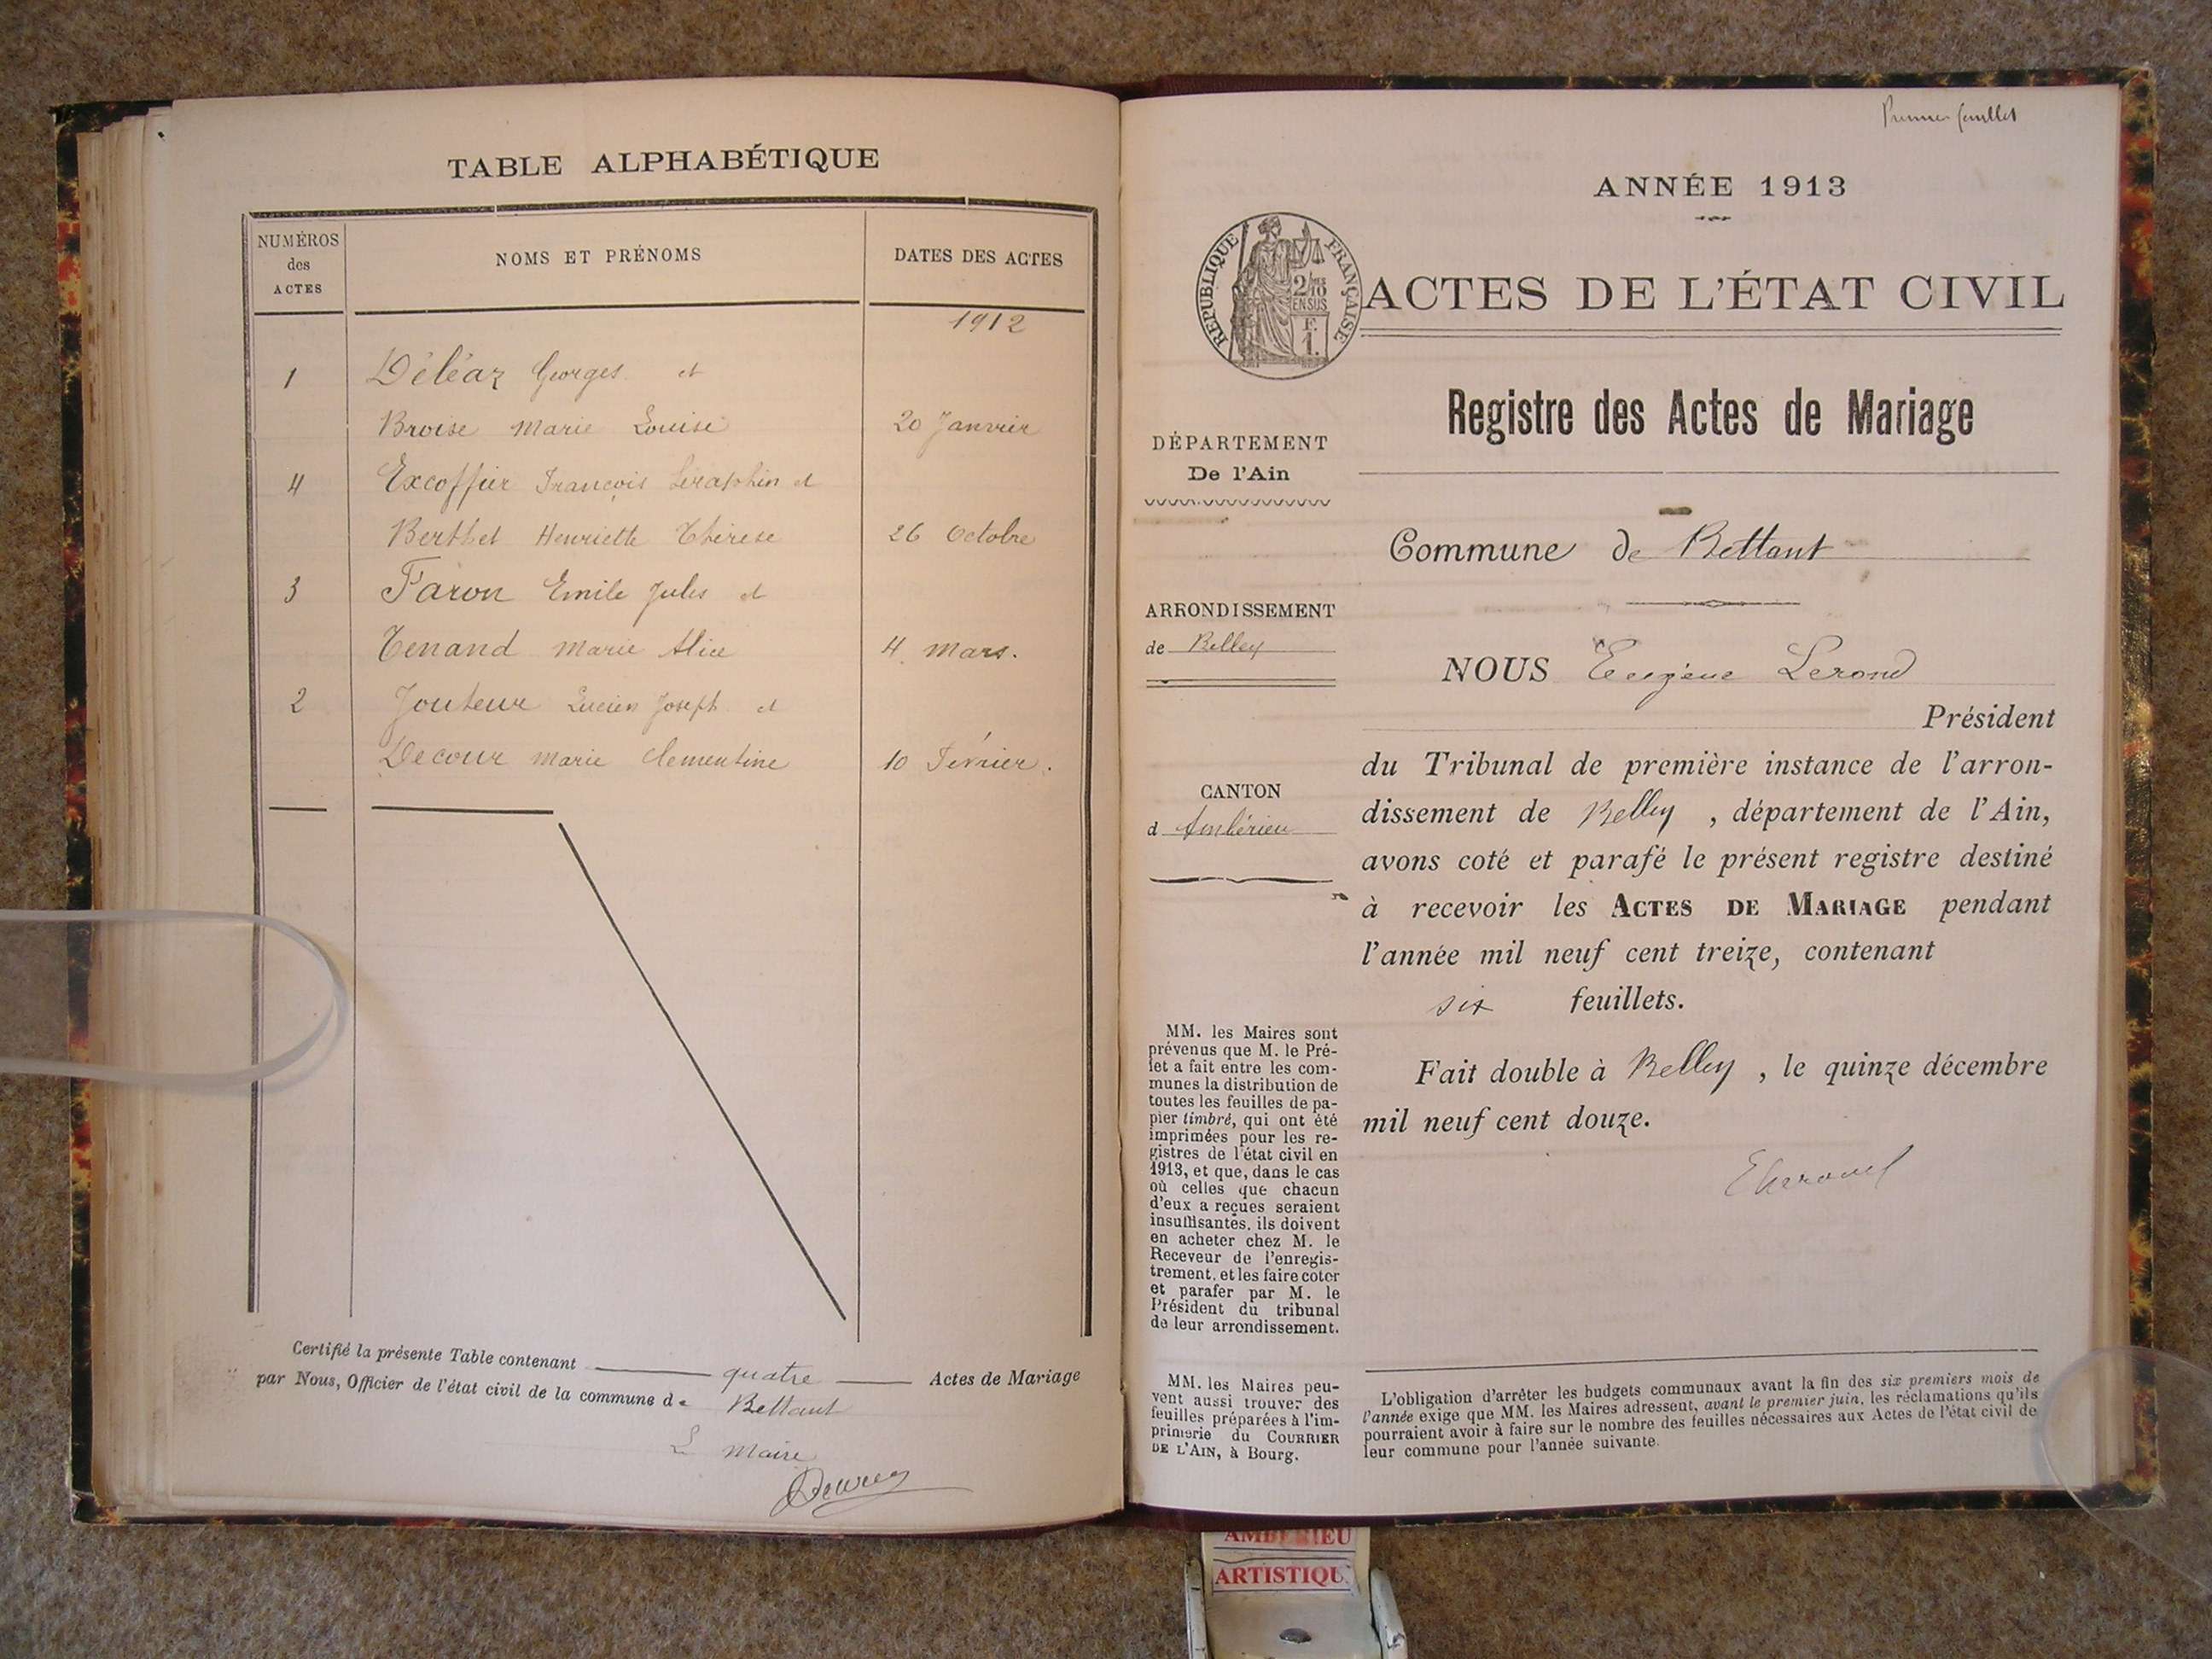 TABLE ALPHABÉTIQUE
NUMÉROS
des
ACTES
NOMS ET PRÉNOMS
DATES DES ACTES
1912
1 Déléaz Georges et
Broise Marie Louise 20 Janvier
4 Excoffier François Séraphin et
Berthet Henriette Thérèse 26 Octobre
3 Faron Emile Jules et
Tenand Marie Alice 4 Mars.
2 Jouteur Lucien Joseph et
Decour Marie Clementine 10 Février.
Certifié la présente Table contenant quatre Actes de Mariage
par Nous, Officier de l'état civil de la commune de Bettant
Le Maire
Premier feuillet
ANNÉE 1913
RÉPUBLIQUE FRANÇAISE
2/10
EN SUS
F.
1.
ACTES DE L'ÉTAT CIVIL
Registre des Actes de Mariage
DÉPARTEMENT
De l'Ain
Commune de Bettant
ARRONDISSEMENT
de Belley
CANTON
d Ambérieu
NOUS Eugène Lerond
Président
du Tribunal de première instance de l'arron-
dissement de Belley , département de l'Ain,
avons coté et parafé le présent registre destiné
à recevoir les ACTES DE MARIAGE pendant
l'année mil neuf cent treize, contenant
six feuillets.
Fait double à Belley , le quinze décembre
mil neuf cent douze.
MM. les Maires sont
prévenus que M. le Pré-
fet a fait entre les com-
munes la distribution de
toutes les feuilles de pa-
pier timbré, qui ont été
imprimées pour les re-
gistres de l'état civil en
1913, et que, dans le cas
où celles que chacun
d'eux a reçues seraient
insuffisantes, ils doivent
en acheter chez M. le
Receveur de l'enregis-
trement, et les faire coter
et parafer par M. le
Président du tribunal
de leur arrondissement.
MM. les Maires peu-
vent aussi trouver des
feuilles préparées à l'im-
primerie du COURRIER
DE L'AIN, à Bourg.
L'obligation d'arrêter les budgets communaux avant la fin des six premiers mois de
l'année exige que MM. les Maires adressent, avant le premier juin, les réclamations qu'ils
pourraient avoir à faire sur le nombre des feuilles nécessaires aux Actes de l'état civil de
leur commune pour l'année suivante.
AMBERIEU
ARTISTIQU